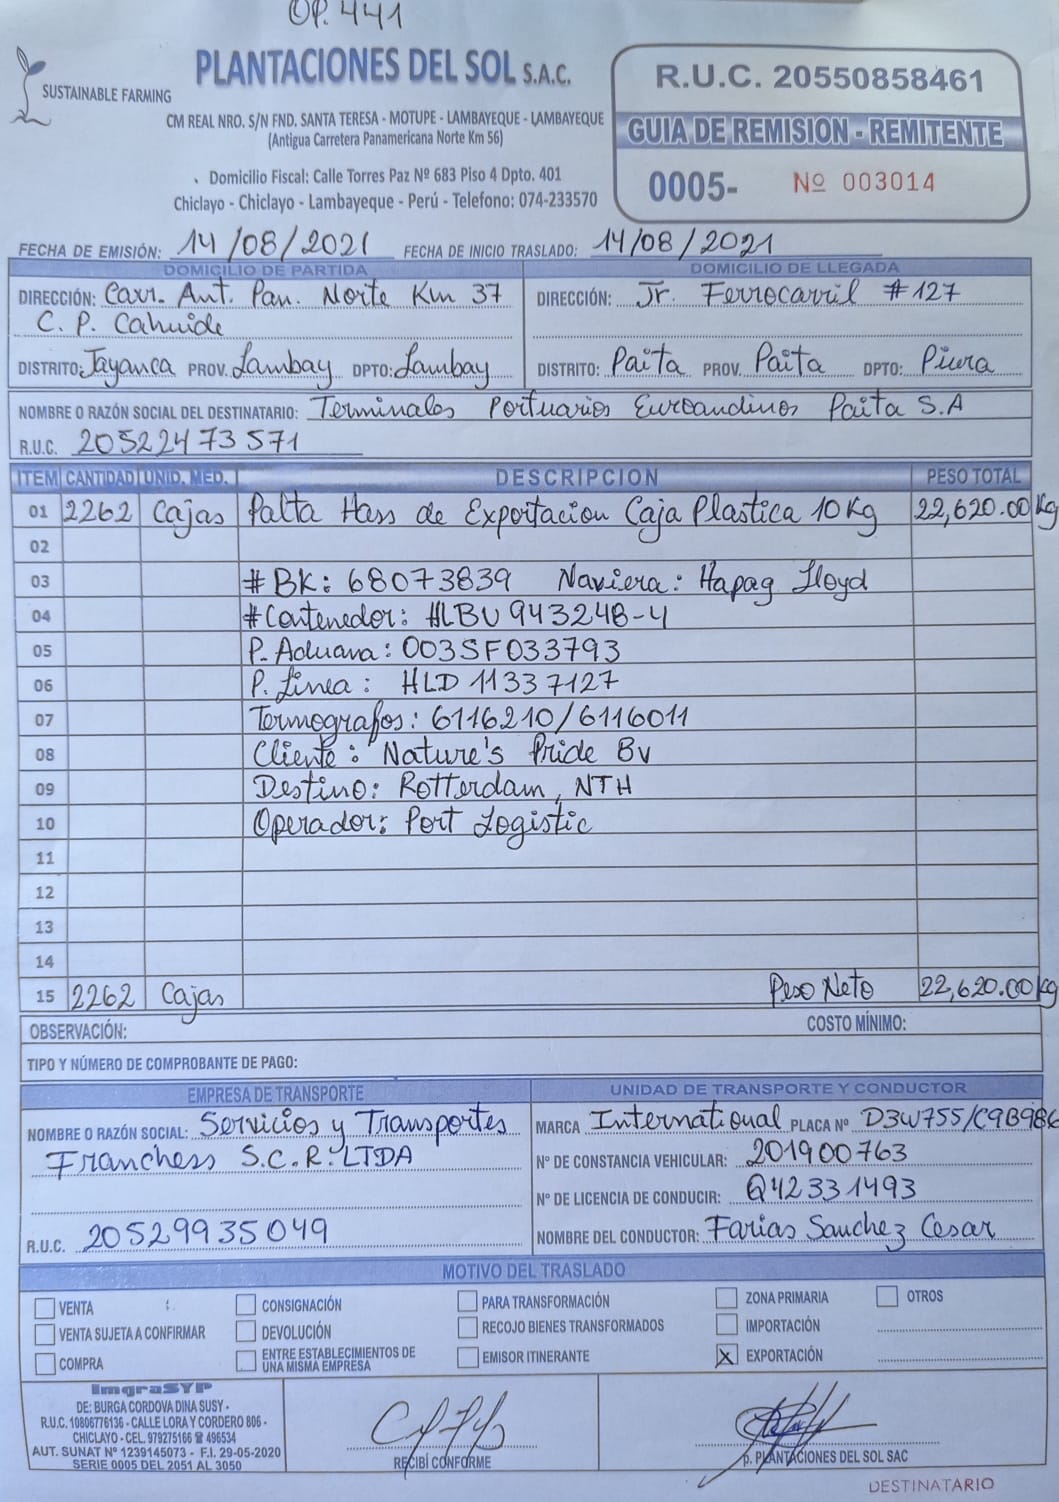 OP. 441
PLANTACIONES DEL SOL S.A.C.
SUSTAINABLE FARMING
CM REAL NRO. S/N FND. SANTA TERESA - MOTUPE - LAMBAYEQUE - LAMBAYEQUE
(Antigua Carretera Panamericana Norte Km 56)
Domicilio Fiscal: Calle Torres Paz Nº 683 Piso 4 Dpto. 401
Chiclayo - Chiclayo - Lambayeque - Perú - Telefono: 074-233570
R.U.C. 20550858461
GUIA DE REMISION - REMITENTE
0005- Nº 003014
FECHA DE EMISIÓN: 14/08/2021 FECHA DE INICIO TRASLADO: 14/08/2021
DOMICILIO DE PARTIDA
DIRECCIÓN: Carr. Ant. Pan. Norte Km 37
C. P. Cahuide
DISTRITO: Jayanca PROV. Lambay DPTO: Lambay
DOMICILIO DE LLEGADA
DIRECCIÓN: Jr. Ferrocarril #127
DISTRITO: Paita PROV. Paita DPTO: Piura
NOMBRE O RAZÓN SOCIAL DEL DESTINATARIO: Terminales Portuarios Euroandinos Paita S.A
R.U.C. 20522473571
ITEM CANTIDAD UNID. MED. DESCRIPCION PESO TOTAL
01 2262 Cajas Palta Hass de Exportacion Caja Plastica 10Kg 22,620.00Kg
02
03 #BK: 68073839 Naviera: Hapag Lloyd
04 #Contenedor: HLBU 943248-4
05 P. Aduana: 003SF033793
06 P. Linea: HLD 11337127
07 Termografos: 6116210/6116011
08 Cliente: Nature's Pride BV
09 Destino: Rotterdam, NTH
10 Operador: Port Logistic
11
12
13
14
15 2262 Cajas Peso Neto 22,620.00Kg
OBSERVACIÓN: COSTO MÍNIMO:
TIPO Y NÚMERO DE COMPROBANTE DE PAGO:
EMPRESA DE TRANSPORTE
NOMBRE O RAZÓN SOCIAL: Servicios y Transportes
Franchess S.C.R. LTDA
R.U.C. 20529935049
UNIDAD DE TRANSPORTE Y CONDUCTOR
MARCA International PLACA Nº D3W755/C9B986
Nº DE CONSTANCIA VEHICULAR: 201900763
Nº DE LICENCIA DE CONDUCIR: Q42331493
NOMBRE DEL CONDUCTOR: Farias Sanchez Cesar
MOTIVO DEL TRASLADO
VENTA CONSIGNACIÓN PARA TRANSFORMACIÓN ZONA PRIMARIA OTROS
VENTA SUJETA A CONFIRMAR DEVOLUCIÓN RECOJO BIENES TRANSFORMADOS IMPORTACIÓN
COMPRA ENTRE ESTABLECIMIENTOS DE UNA MISMA EMPRESA EMISOR ITINERANTE X EXPORTACIÓN
ImgraSYP
DE: BURGA CORDOVA DINA SUSY -
R.U.C. 10806776136 - CALLE LORA Y CORDERO 806 -
CHICLAYO - CEL. 979275166 ☎ 496534
AUT. SUNAT Nº 1239145073 - F.I. 29-05-2020
SERIE 0005 DEL 2051 AL 3050
RECIBÍ CONFORME
p. PLANTACIONES DEL SOL SAC
DESTINATARIO